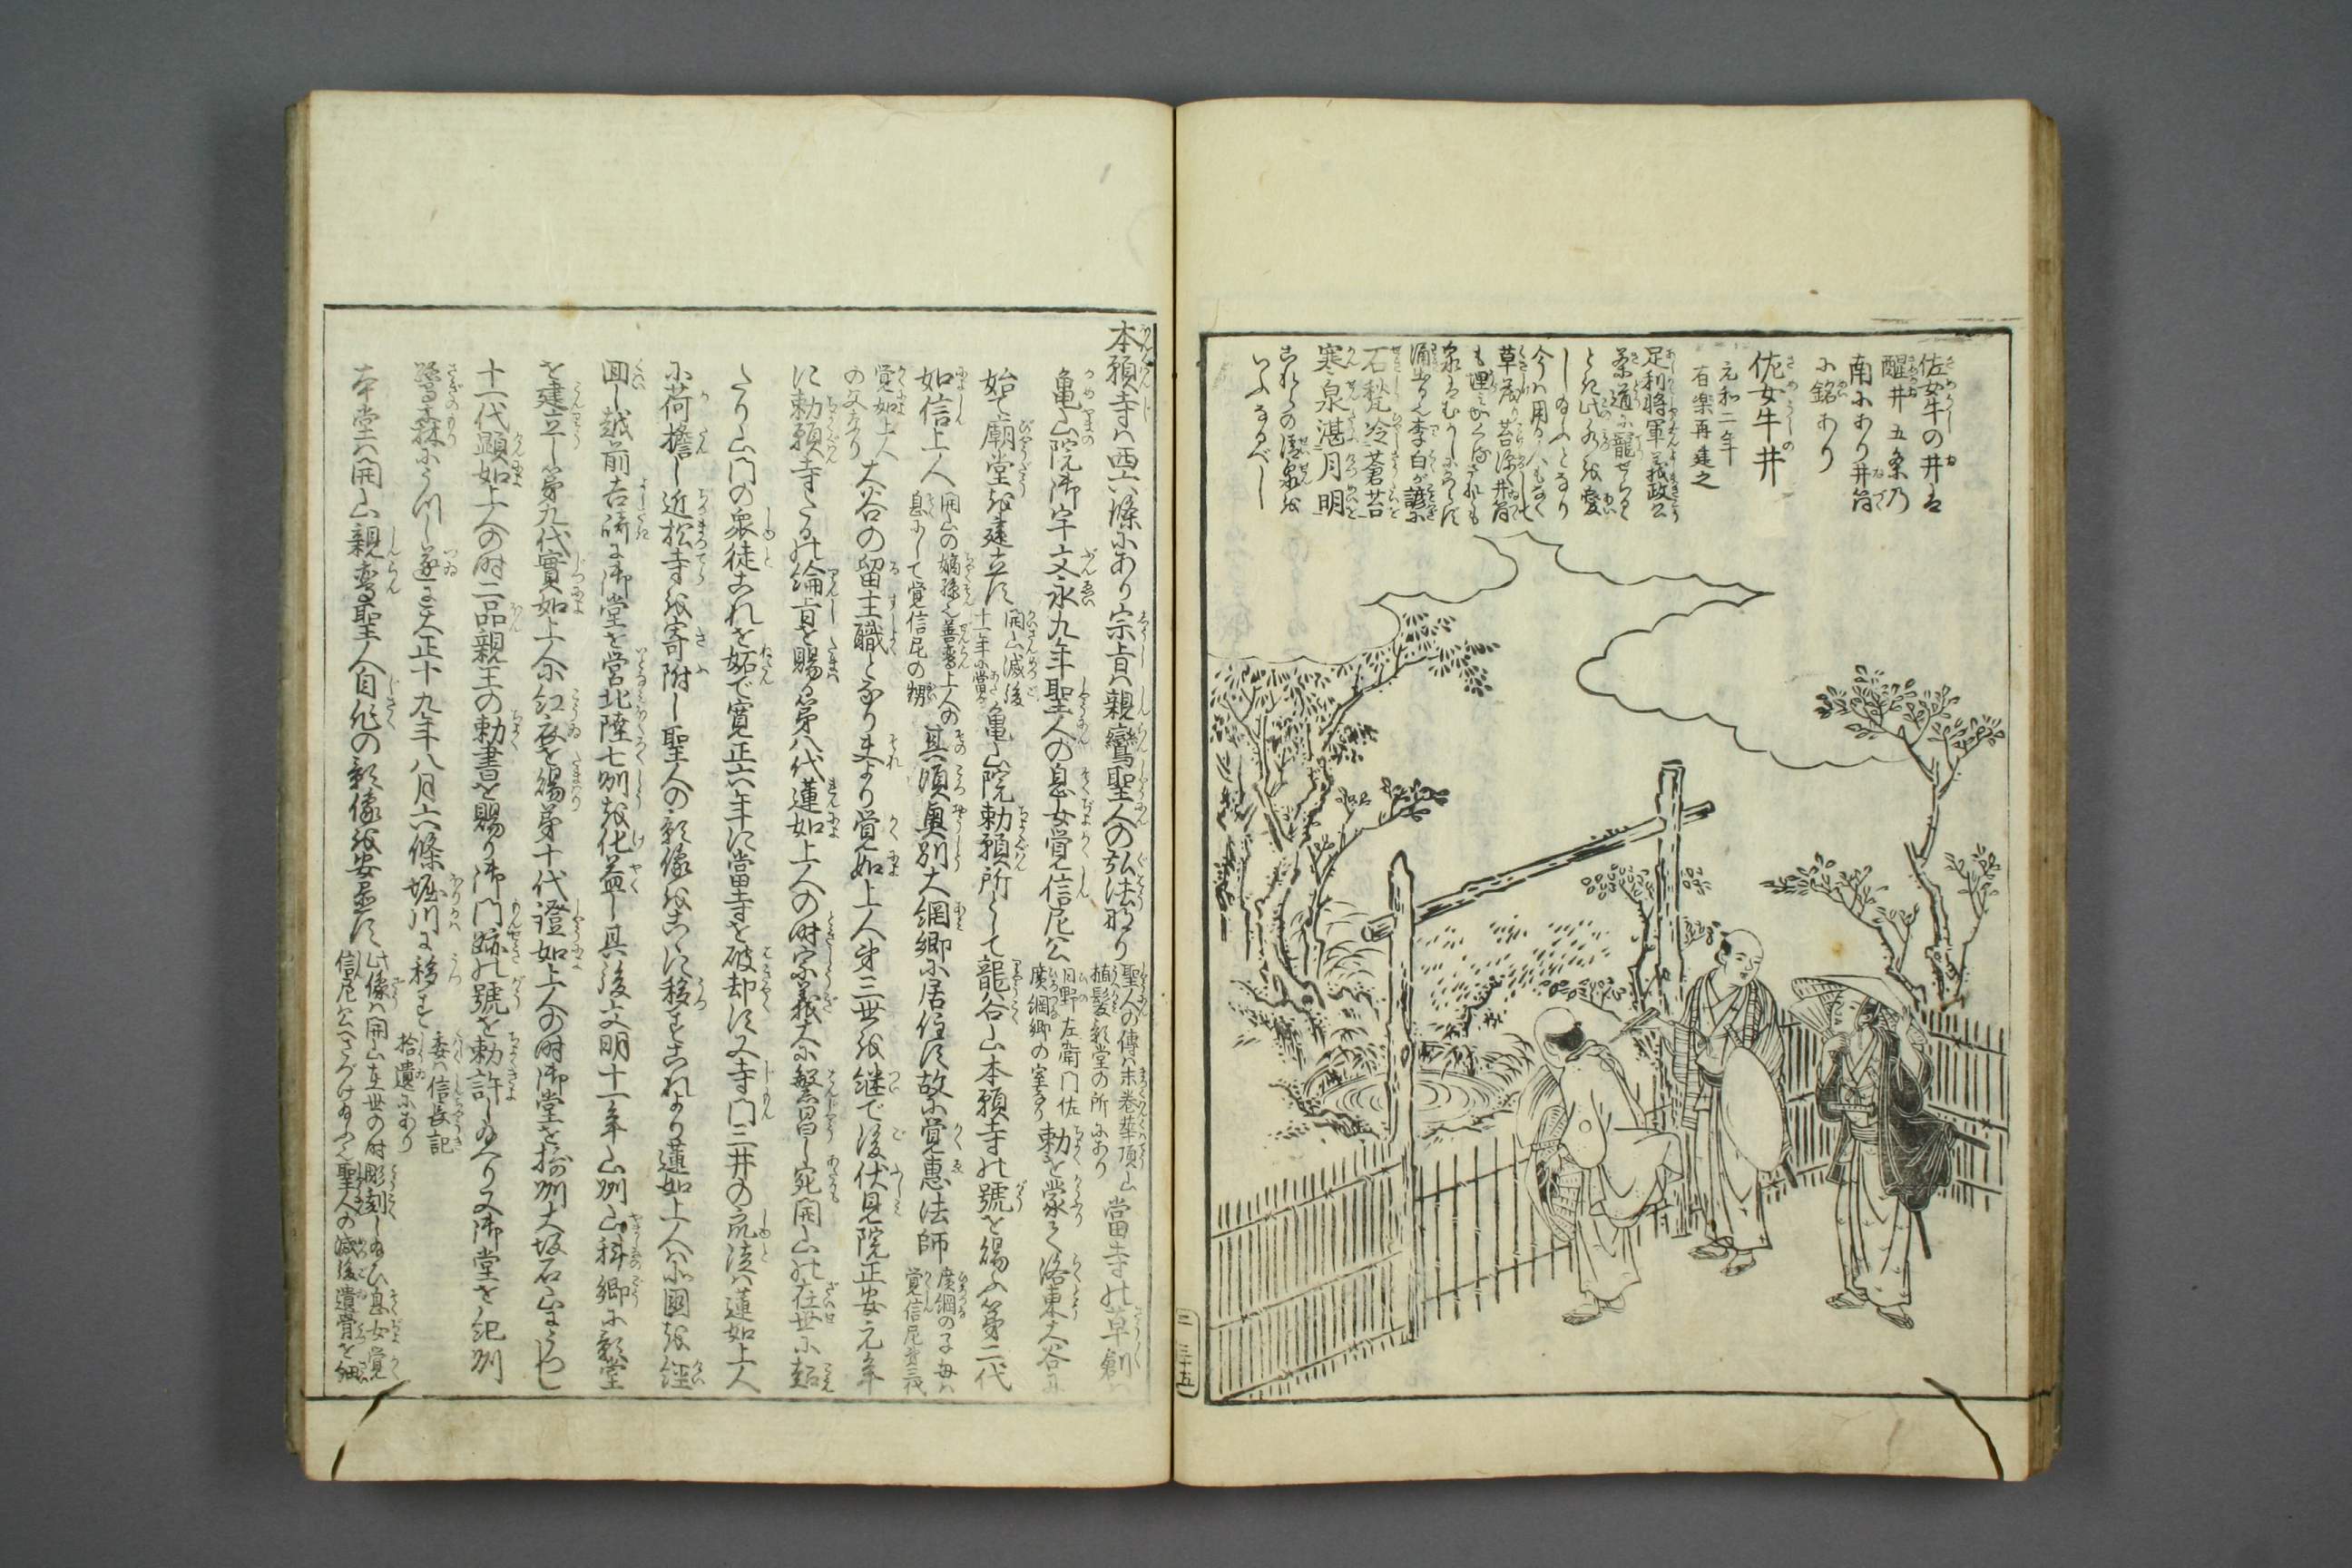 佐女牛の井は
醒井五条乃
南にあり井筒
に銘あり
佐女牛井
元和二年
有楽再建之
足利将軍義政公
茶道に寵せらるゝ
とき此水を愛
し給ふとなり
今は用る人もなく
草茂り苔深し井筒
も埋
泉はむかしにかはらず
涌出る李白が諺に
石甃冷蒼苔
寒泉湛月明
これらの淫泉を
いふなるべし
三 三十五
本願寺は西六條にあり宗旨は親鸞聖人の弘法なり
聖人の傳は末巻華頂山
植髪影堂の所にあり
當寺の草創は
亀山院御宇文永九年聖人の息女覚信尼公
日野左衛門佐
廣綱卿の室なり
勅を蒙て洛東大谷に
始て廟堂を建立す
開山滅後
十一年に當る
亀山院勅願所として龍谷山本願寺の號を賜ふ第二代
如信上人
開山の嫡孫善鸞上人の
息にして覚信尼の甥
其頃奥刕大網郷に居住す故に覚恵法師
廣綱の子母は
覚信尼第三代
覚如上人
の父なり
大谷の留主職となり夫より覚如上人第三世を継で後伏見院正安元年
に勅願寺たる綸旨を賜る第八代蓮如上人の時宗義大に繁昌し宛開山の在世に超
たり山門の衆徒これを妬で寛正六年に當寺を破却す又寺門三井の流徒は蓮如上人
に荷擔し近松寺を寄附し聖人の影像をこゝに移すこれより蓮如上人は諸國を経
回し越前吉崎に御堂を営北陸七刕を化益し其後文明十一年山刕山科郷に影堂
を建立し第九代實如上人に紅衣を賜第十代證如上人の時御堂を摂刕大坂石山にうつし
十一代顕如上人の時二品親王の勅書を賜り御門跡の號を勅許し給へり又御堂を紀刕
鷺森にうつし遂に天正十九年八月六條堀川に移す
委は信長記
拾遺にあり
本堂は開山親鸞聖人自作の影像を安置す
此像は開山在世の時彫刻し給ひ息女覚
信尼公へさづけ給ふ聖人の滅後遺骨を細